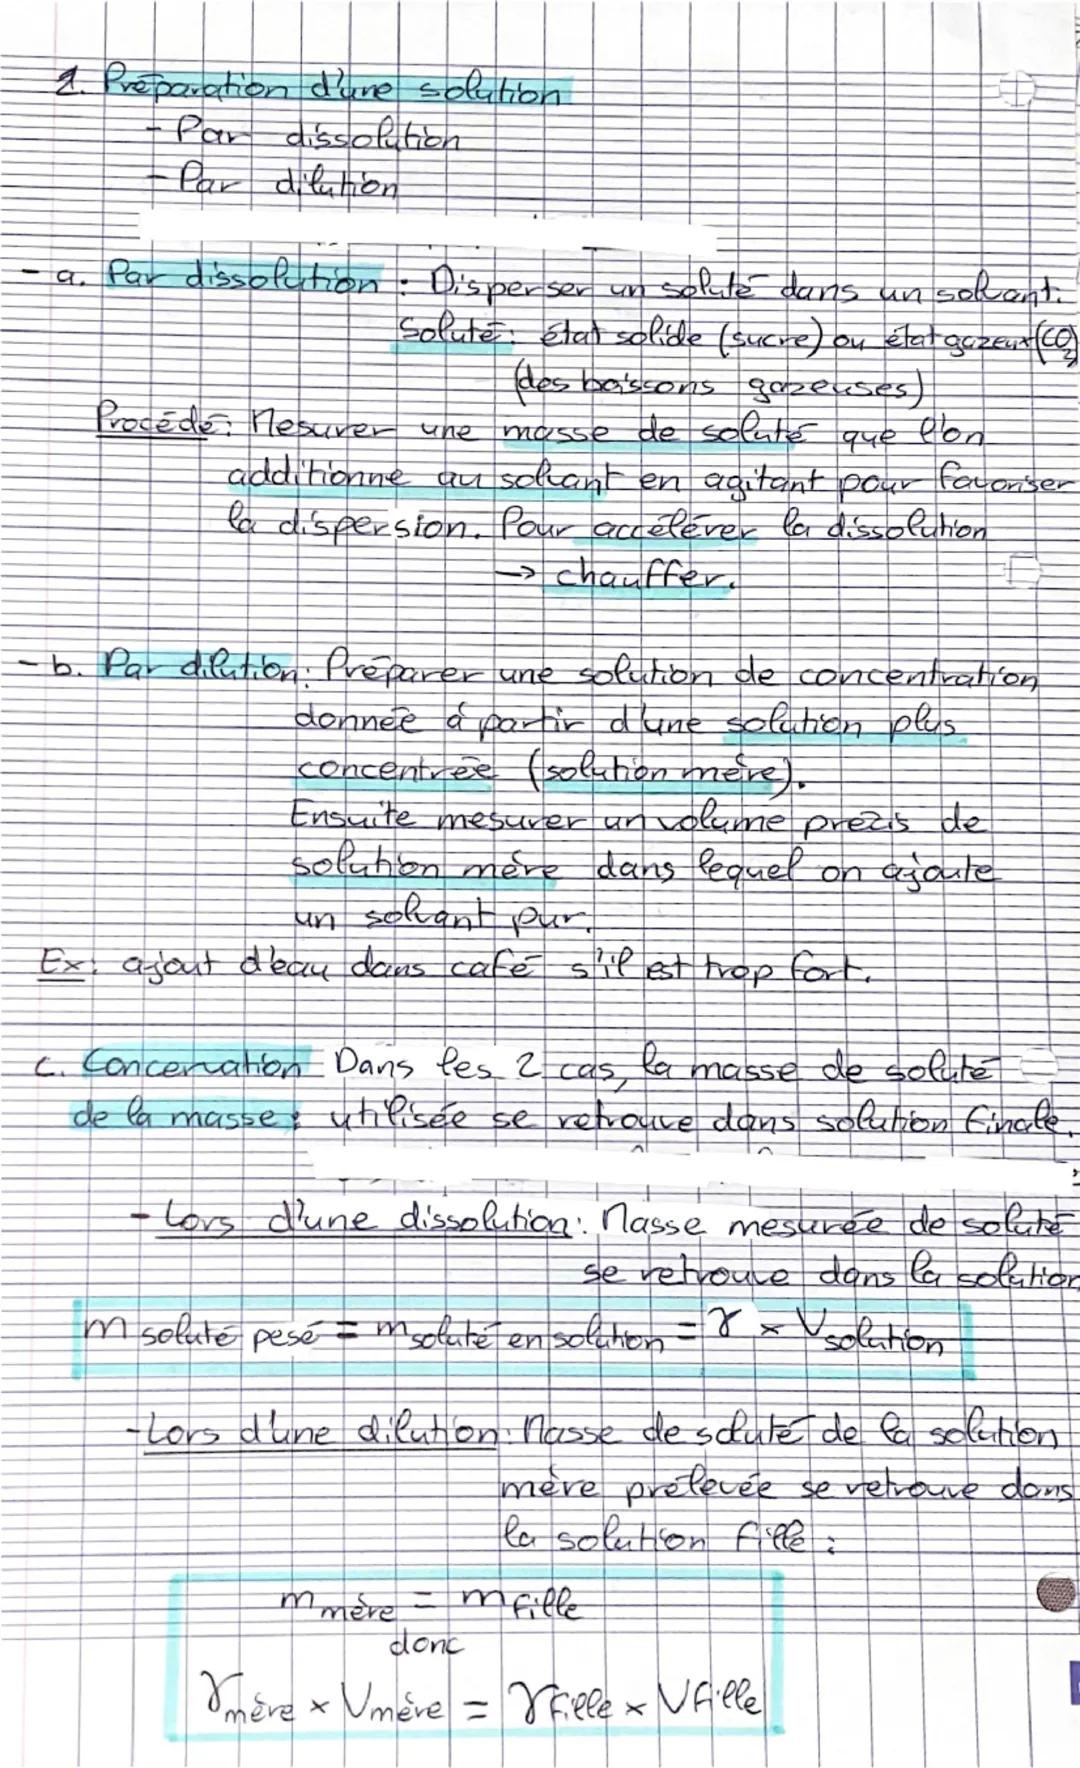 1. Préparation d'une solution
- Par dissolution
- Par dilution
- a. Par dissolution : Disperser un soluté dans un solvant.
Soluté: état solide (sucre) ou état gazeux (CO2)
(des boissons gazeuses)
Procédé: Mesurer une masse de soluté que l'on
additionne au solvant en agitant pour favoriser
la dispersion. Pour accélérer la dissolution
→ chauffer.
- b. Par dilution: Préparer une solution de concentration
donnée à partir d'une solution plus
concentrée (solution mère).
Ensuite mesurer un volume prezis de
solution mère dans lequel on ajoute
un solvant pur.
Ex: ajout d'eau dans café s'il est trop fort.
c. Concervation Dans les 2 cas, la masse de soluté
de la masse: utilisée se retrouve dans solution finale.
- Lors d'une dissolution: Masse mesurée de soluté
se retrouve dans la solution
m soluté pesé = m soluté en solution = γ × V solution
- Lors d'une dilution: Masse de soluté de la solution
mère prélevée se retrouve dans
la solution fille :
m mère = m fille
donc
γ mère × V mère = γ fille × V fille